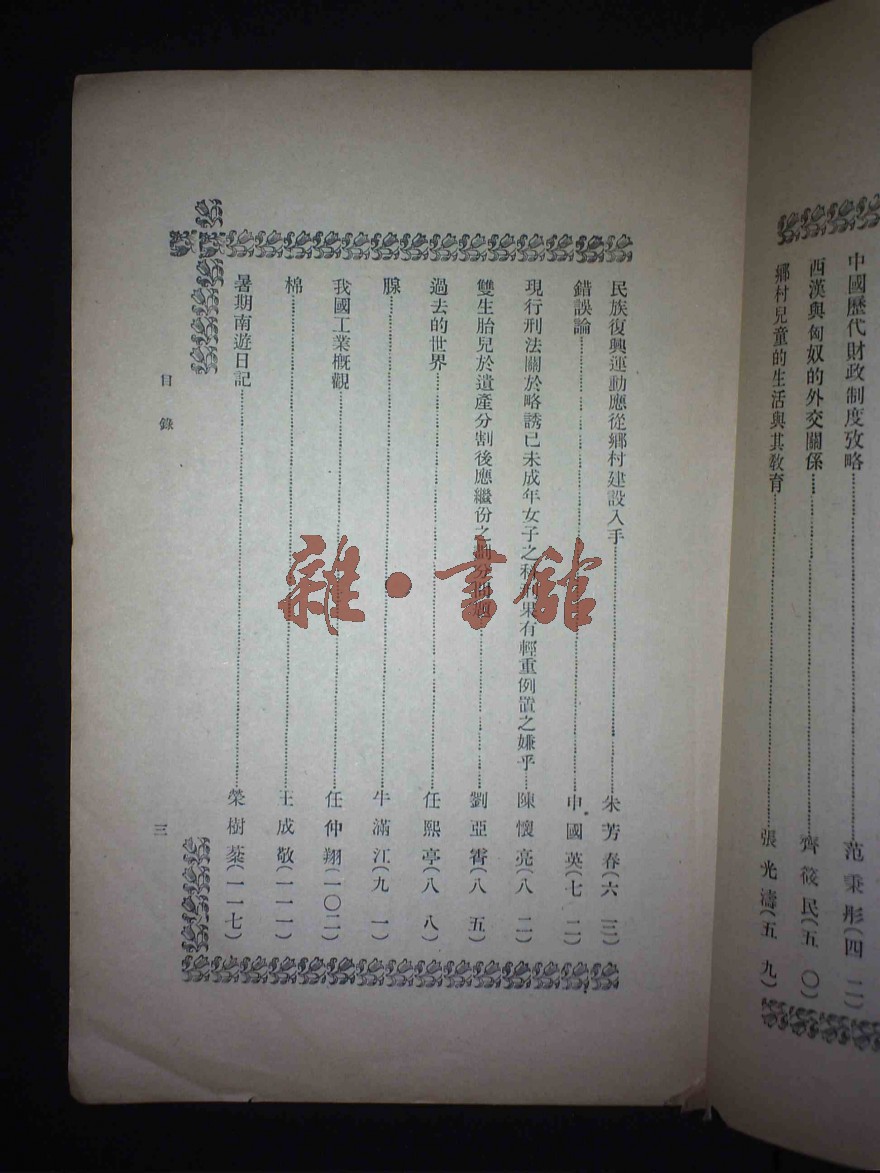 中國歷代財政制度攷略……范秉彤(四二)
西漢與匈奴的外交關係……齊筱民(五〇)
鄉村兒童的生活與其敎育……張光濤(五九)
民族復興運動應從鄉村建設入手……朱芳春(六三)
錯誤論……申國英(七二)
現行刑法關於略誘已未成年女子之科刑果有輕重例置之嫌乎……陳懷亮(八二)
雙生胎兒於遺產分割後應繼份之劃分問題……劉亞霄(八五)
過去的世界……任熙亭(八八)
腺……牛滿江(九一)
我國工業槪觀……任仲翔(一〇二)
棉……王成敬(一一一)
暑期南遊日記……榮樹棻(一一七)
目錄
三
雜·書館